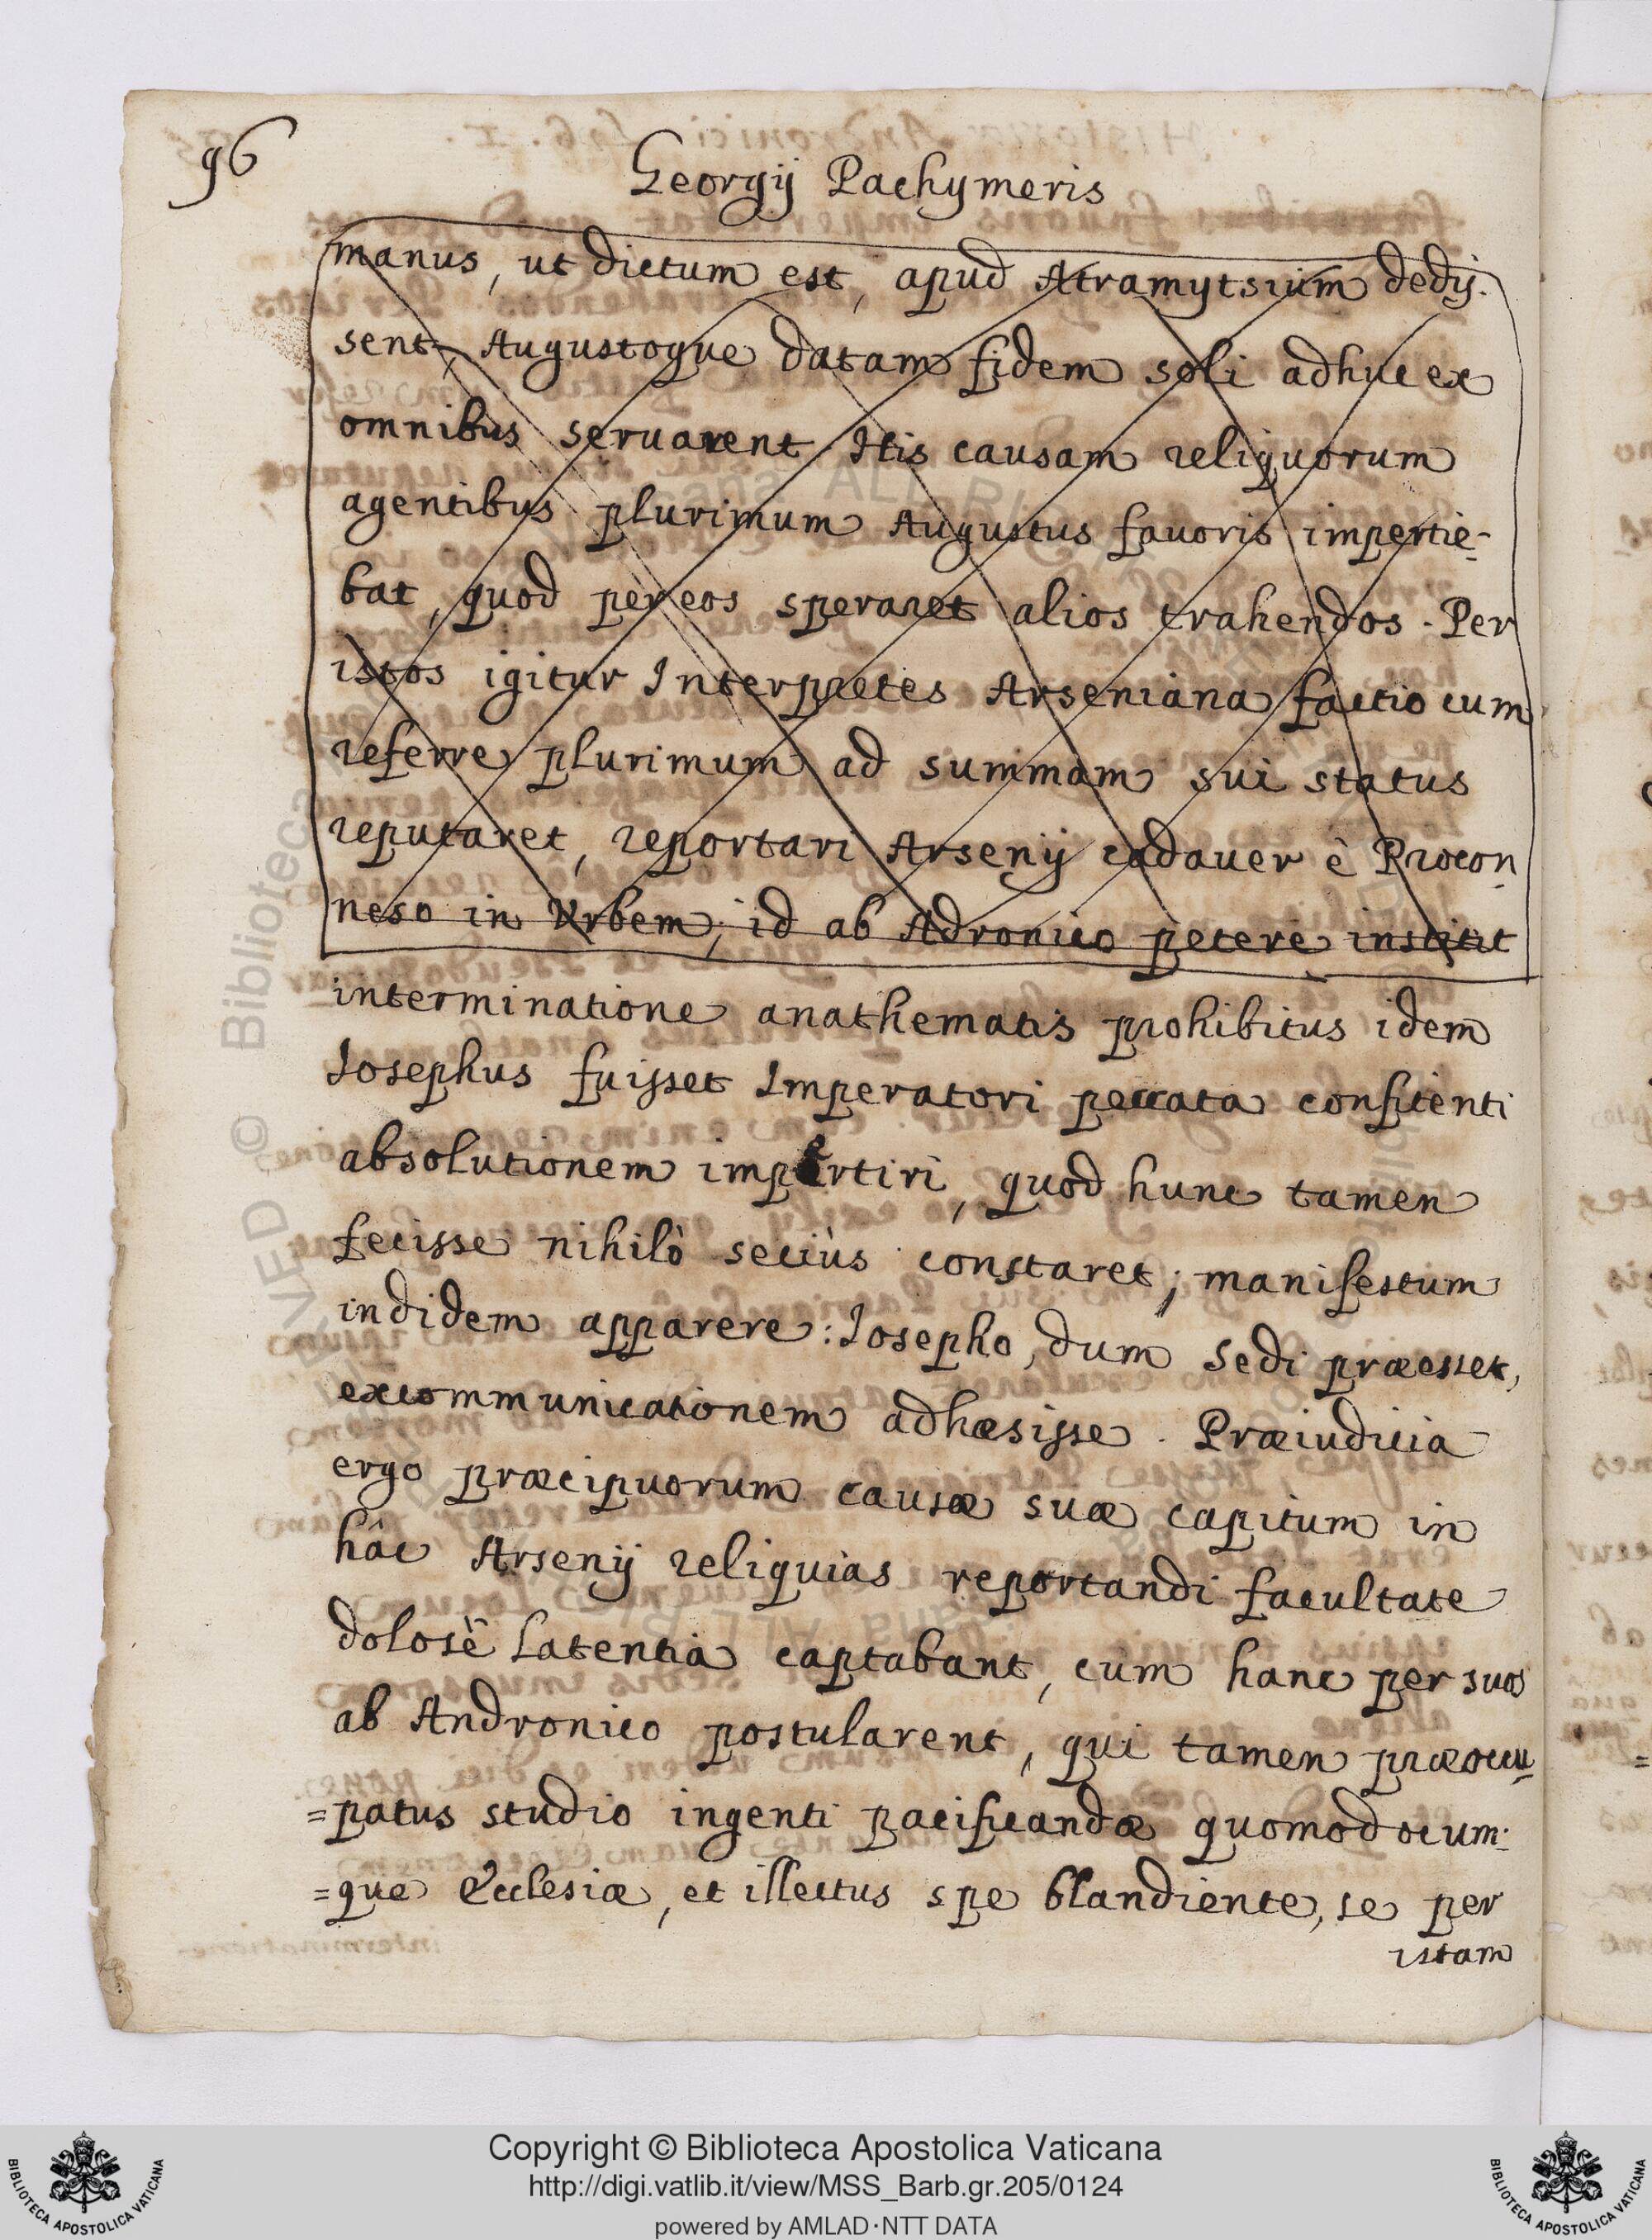 96
Georgij Pachymeris
manus, ut dictum est, apud Atramytsium dedis-
sent, Augustoque datam fidem soli adhuc ex
omnibus seruarent. His causam reliquorum
agentibus plurimum Augustus fauoris impertie-
bat, quod per eos speraret alios trahendos. Per
istos igitur Interpretes Arseniana factio cum
referre plurimum ad summam sui status
reputaret, reportari Arsenij cadauer è Procon
neso in Vrbem; id ab Adronico petere institit
interminatione anathematis prohibitus idem
Iosephus fuisset Imperatori peccata confitenti
absolutionem impertiri, quod hunc tamen
fecisse nihilò seciùs constaret; manifestum
indidem apparere: Iosepho, dum sedi præesset,
excommunicationem adhæsisse. Præiudicia
ergo præcipuorum causæ suæ capitum in
hâc Arsenij reliquias reportandi facultate
dolosè latentia captabant, cum hanc per suos
ab Andronico postularent, qui tamen præoccu-
=patus studio ingenti pacificandæ quomodocum-
=que Ecclesiæ, et illectus spe blandiente, se per
istam
Copyright © Biblioteca Apostolica Vaticana
http://digi.vatlib.it/view/MSS_Barb.gr.205/0124
powered by AMLAD·NTT DATA
BIBLIOTECA APOSTOLICA VATICANA
BIBLIOTECA APOSTOLICA VATICANA